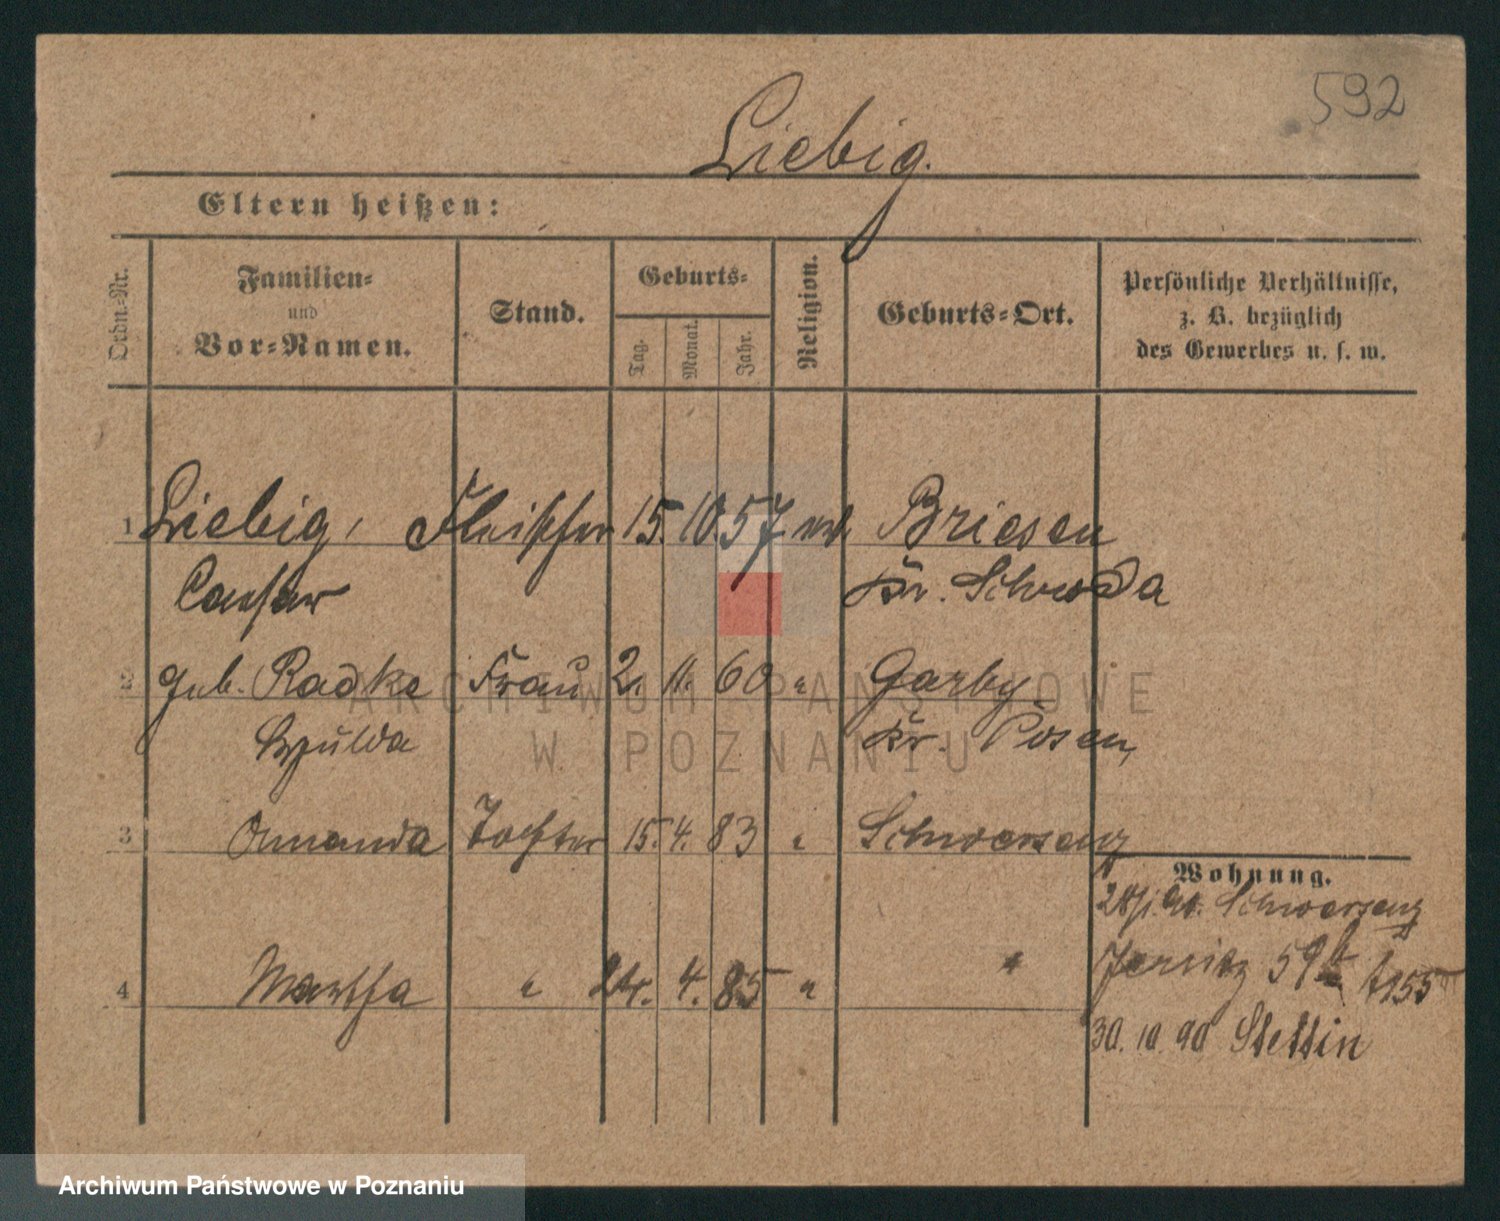 592
Liebig.
Eltern heißen:
Ordn.-Nr.
Familien-
und
Vor-Namen.
Stand.
Geburts-
Tag.
Monat.
Jahr.
Religion.
Geburts-Ort.
Persönliche Verhältnisse,
z. B. bezüglich
des Gewerbes u. s. w.
1 Liebig, Fleischer 15. 10. 57. Briesen
Kr. Schroda
2 geb. Radke Frau 2. 11. 60 " Garby
Kr. Posen
3 Amanda Tochter 15. 4. 83 " Schwersenz
Wohnung.
Schwersenz
4 Martha " 24. 4. 85 " "
Jersitz 59
30. 10. 90 Stettin
ARCHIWUM PAŃSTWOWE
W POZNANIU
Archiwum Państwowe w Poznaniu